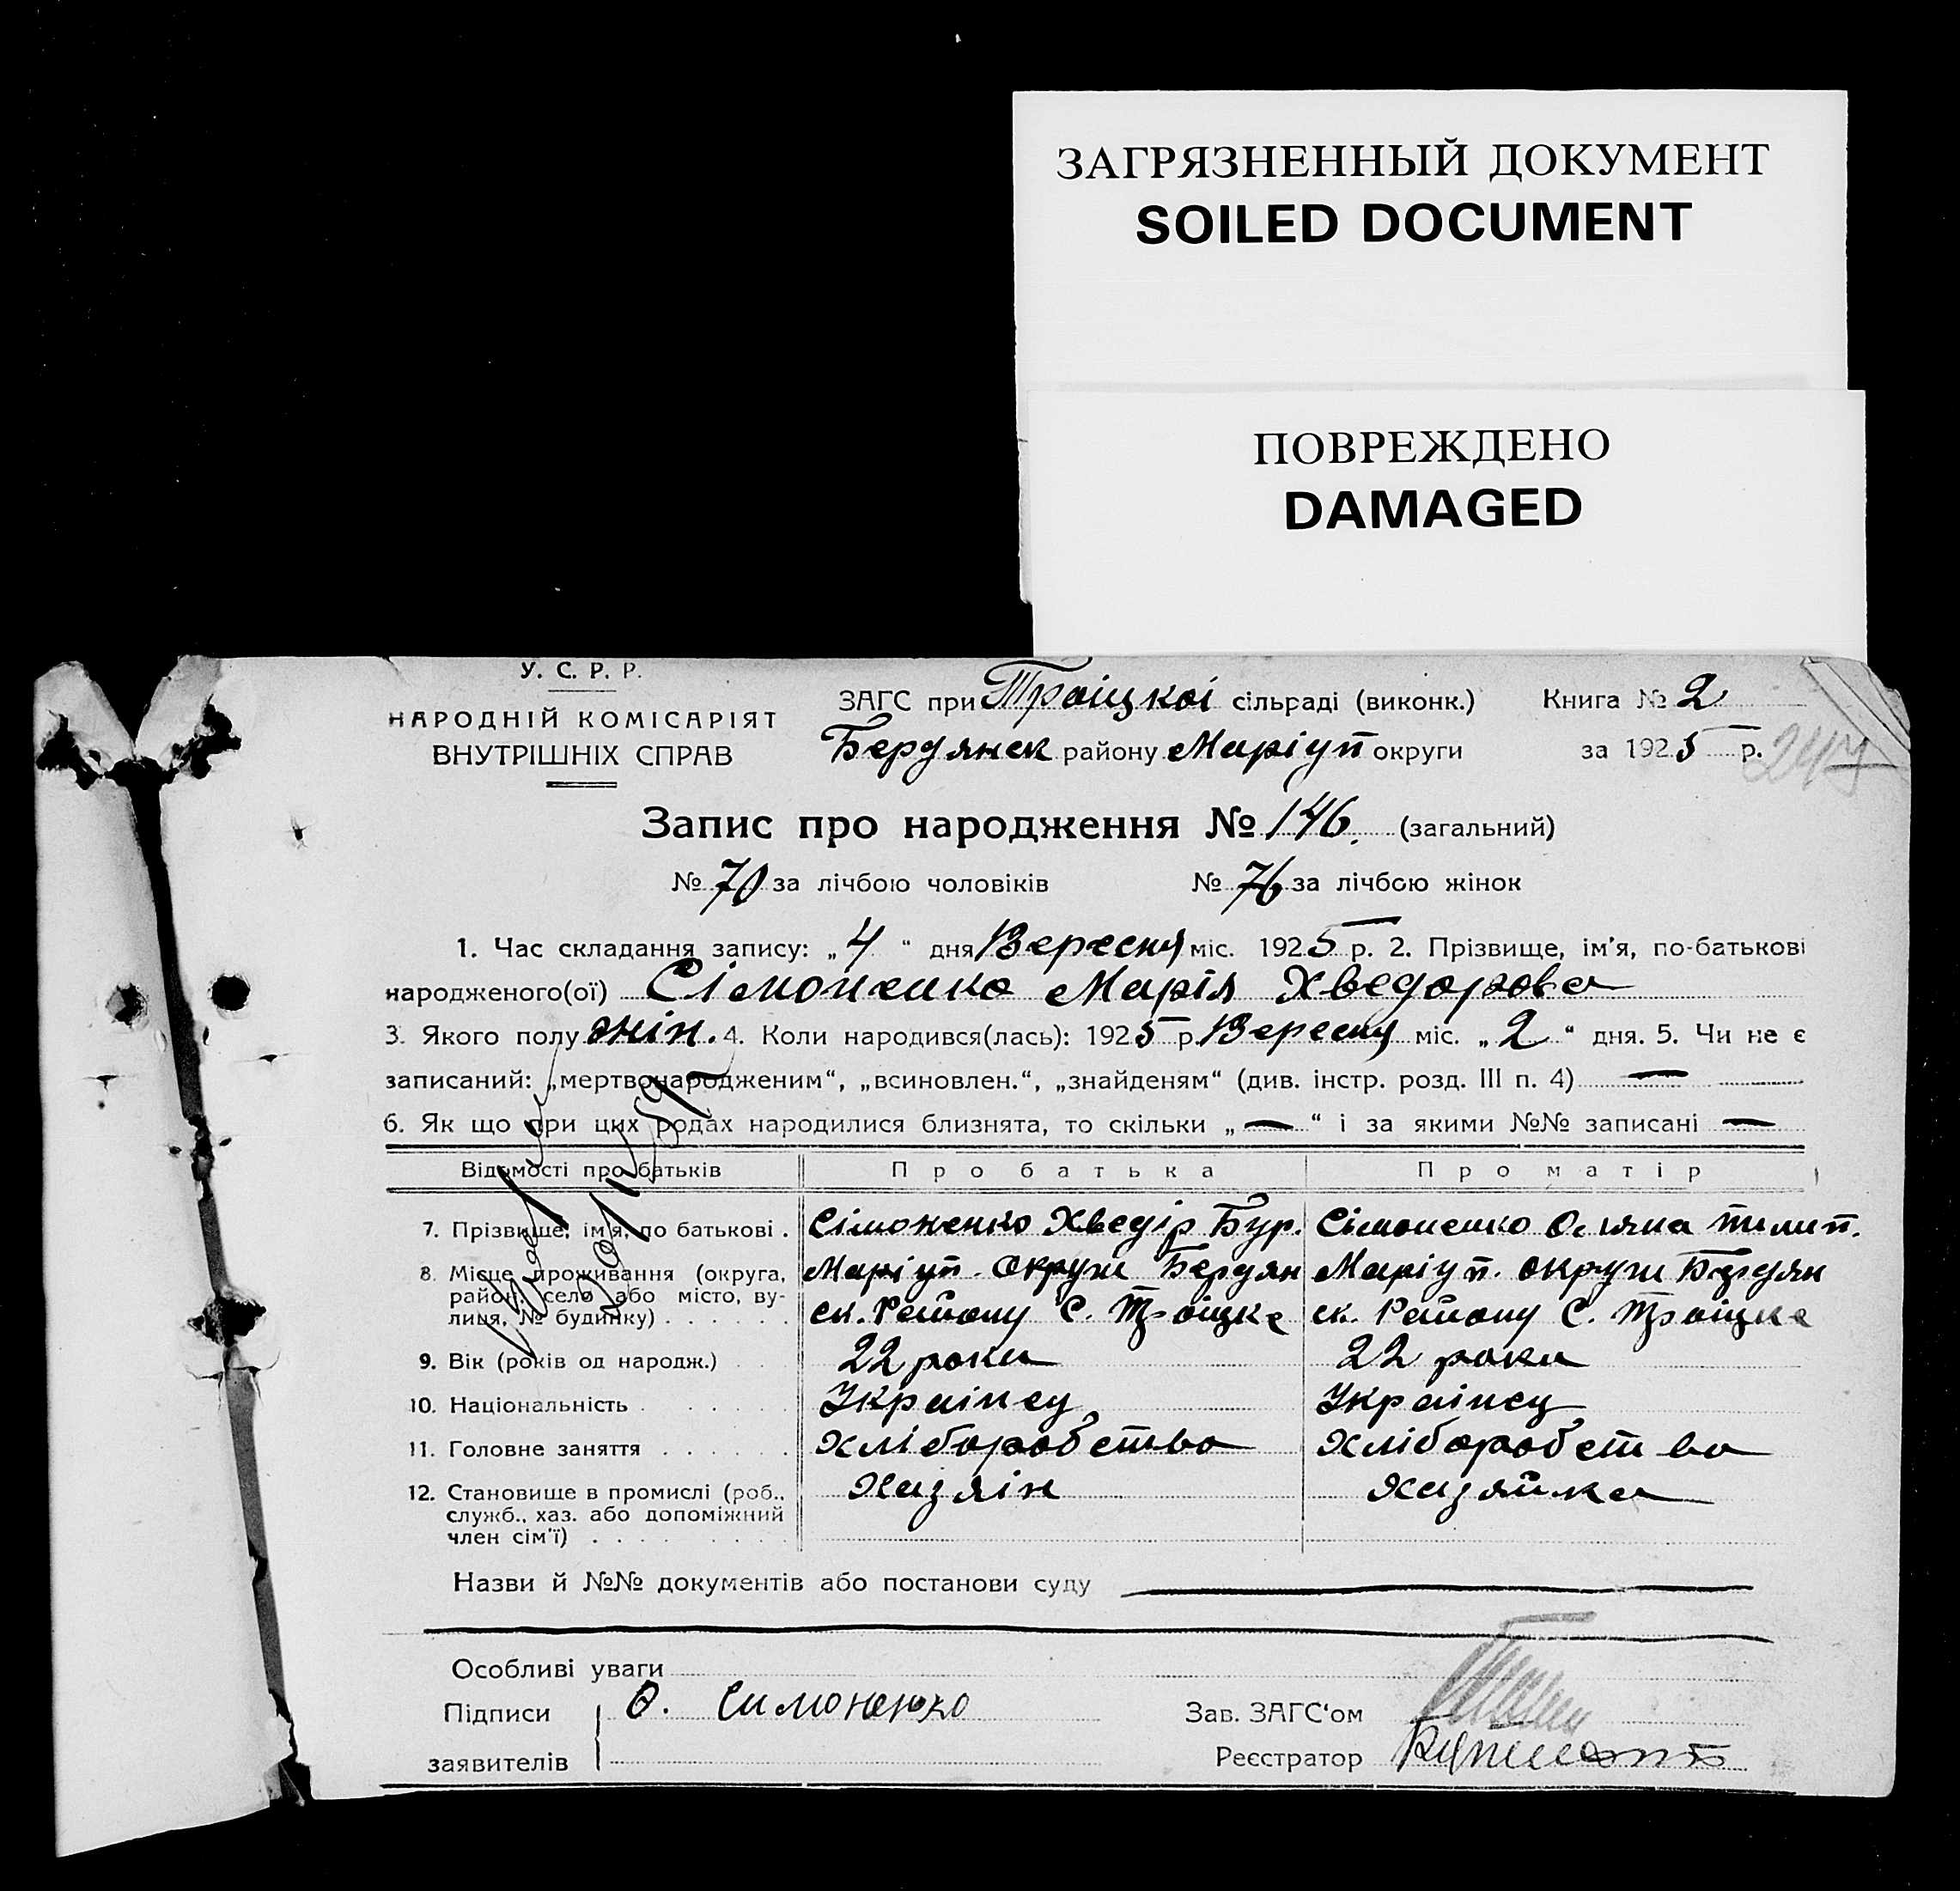 ЗАГРЯЗНЕННЫЙ ДОКУМЕНТ
SOILED DOCUMENT
ПОВРЕЖДЕНО
DAMAGED
У. С. Р. Р.
НАРОДНІЙ КОМІСАРІЯТ
ВНУТРІШНІХ СПРАВ
ЗАГС при Троіцкоі сільраді (виконк.) Книга № 2
Бердянск району Маріуп округи за 1925 р.
247
Запис про народження № 146. (загальний)
№ 70 за лічбою чоловіків № 76 за лічбою жінок
1. Час складання запису: „4“ дня Вересня міс. 1925 р. 2. Прізвище, ім'я, по-батькові
народженого(ої) Сімоненко Марія Хведорова
3. Якого полу жін. 4. Коли народився(лась): 1925 р. Вересня міс. „2“ дня. 5. Чи не є
записаний: „мертвонародженим“, „всиновлен.“, „знайденям“ (див. інстр. розд. III п. 4) —
6. Як що при цих родах народилися близнята, то скільки „—“ і за якими №№ записані —
Відомості про батьків Про батька Про матір
7. Прізвище, ім'я, по батькові . Сімоненко Хведір Сімоненко
8. Місце проживання (округа, Маріуп. Округи Бердян Маріуп. округи Бердян
район, село або місто, ву- ск. Району С. Троіцке ск. Району С. Троіцке
лиця, № будинку) . . . . . .
9. Вік (років од народж.) 22 роки 22 роки
10. Національність . . . . . . Украінец Украінец
11. Головне заняття . . . . . . Хліборобство Хліборобство
12. Становище в промислі (роб., Хазяін Хазяйка
служб., хаз. або допоміжний
член сім'ї) . . . . . . . .
Назви й №№ документів або постанови суду
Особливі уваги
Підписи О. Симоненко Зав. ЗАГС'ом
заявителів Реєстратор